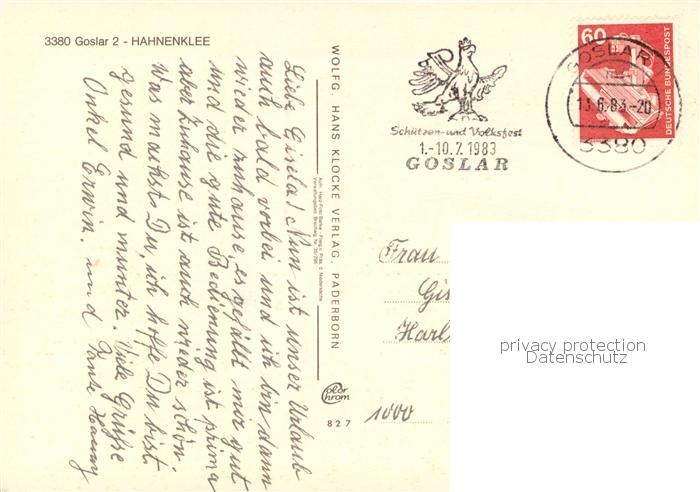 3380 Goslar 2 - HAHNENKLEE
Liebe Gisela! Nun ist unser Urlaub
auch bald vorbei und ich bin dann
wieder zuhause, es gefällt mir gut
und die gute Bedienung ist prima
aber Zuhause ist auch wieder schön.
Was machst Du, ich hoffe Du bist
gesund und munter. Viele Grüße
Onkel Erwin. und Tante Hanny
WOLFG. HANS KLOCKE VERLAG, PADERBORN
colorchrom
827
Schützen- und Volksfest
1.-10.7.1983
GOSLAR
60
DEUTSCHE BUNDESPOST
GOSLAR
13.6.83.-20
3380
Frau
Gis
Harls
1000
privacy protection
Datenschutz